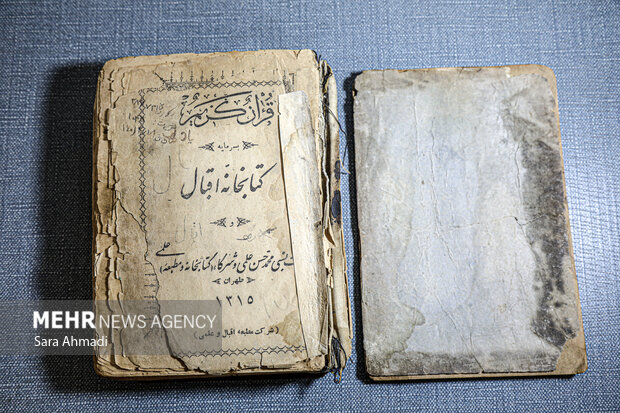 قرآن کریم
بسرمایه
کتابخانه اقبال
و
محمد حسن علمی و شرکاء (کتابخانه و مطبعه علمی)
طهران
۱۳۱۵
(شرکت مطبعه اقبال و علمی)
MEHR NEWS AGENCY
Sara Ahmadi